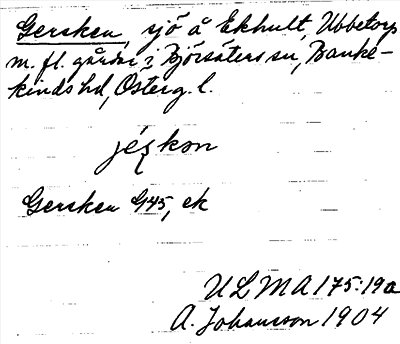 Gersken, sjö å Ekhult, Ubbetorp
m. fl. gårdar i Björsäters sn, Banke-
kinds hd, Österg. l.
Gersken G45, ek
ULMA 175:19a
A. Johansson 1904